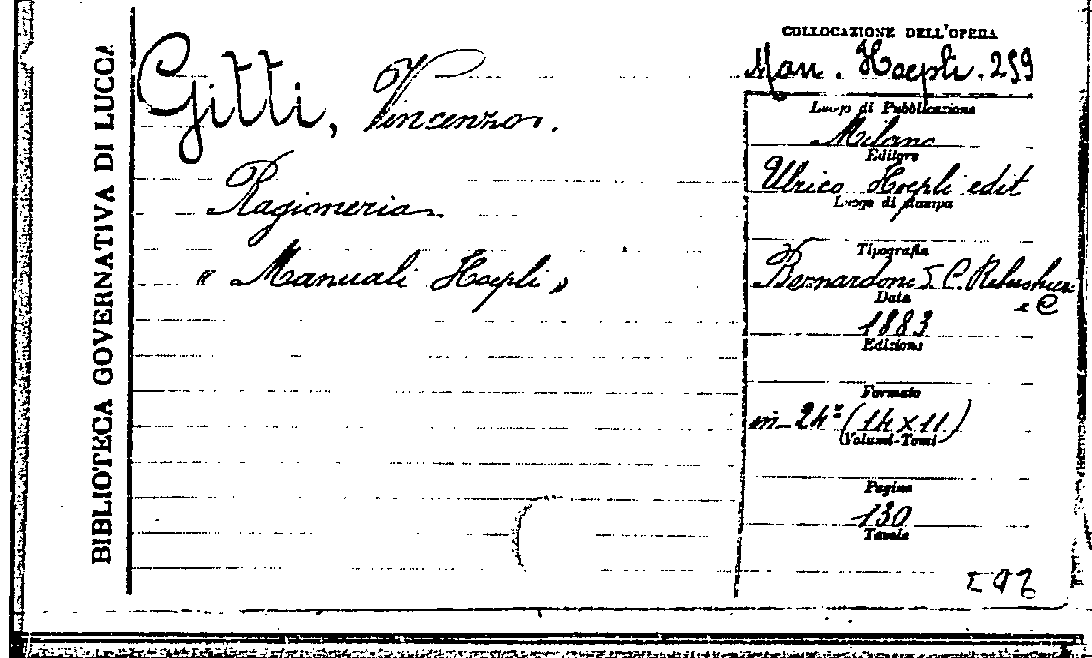 BIBLIOTECA GOVERNATIVA DI LUCCA
Gitti, Vincenzo.
Ragioneria
« Manuali Hoepli »
COLLOCAZIONE DELL'OPERA
Man. Hoepli. 259
Luogo di Pubblicazione
Milano
Editore
Ulrico Hoepli edit
Luogo di stampa
Tipografia
Bernardoni C. Rebeschini
e C
Data
1883
Edizione
Formato
in-24° (14 x 11)
Volumi-Tomi
Pagine
130
Tavole